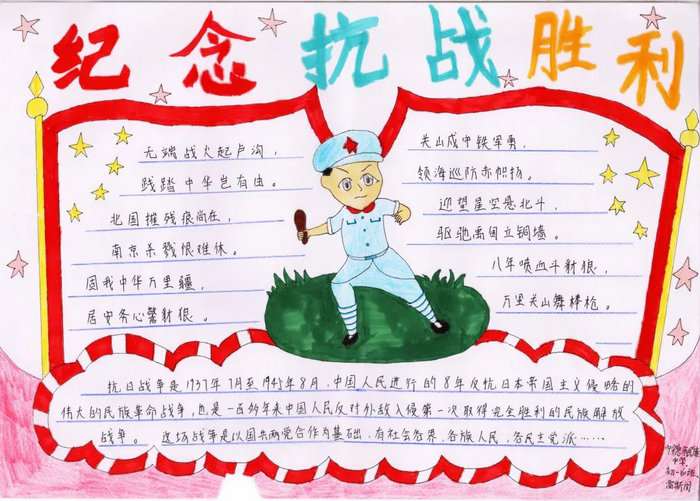 纪念抗战胜利
无端战火起卢沟，
践踏中华岂有由。
北国摧残狼尚在，
南京杀戮恨难休。
固我中华万里疆，
居安务心警豺狼。
关山成守铁军勇，
领海巡防赤帜扬。
迎望星空悬北斗，
驱驰禹国立铜墙。
八年喷血斗豺狼，
万里关山舞棒枪。
抗日战争是1937年7月至1945年8月，中国人民进行的8年反抗日本帝国主义侵略的
伟大的民族革命战争，也是一百多年来中国人民反对外敌入侵第一次取得完全胜利的民族解放
战争。这场战争是以国共两党合作为基础，有社会各界，各族人民，各民主党派……
中学